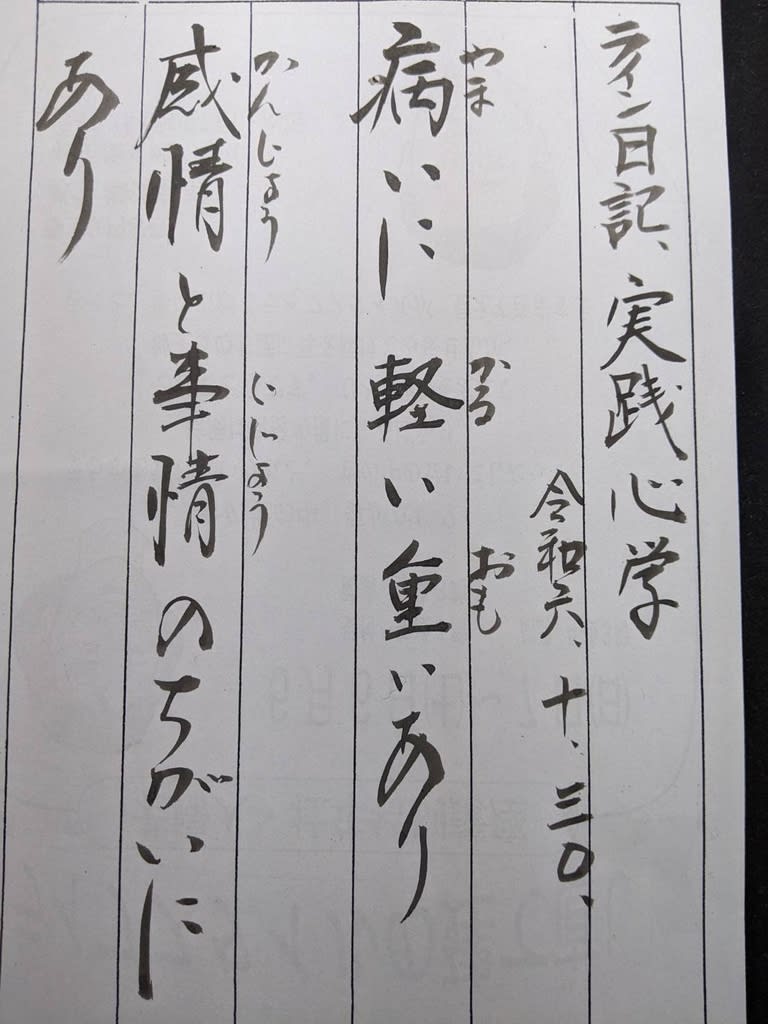 ライン日記、実践心学
令和六、十、三〇、
やま かる おも
病いに軽い重いあり
かんじょう じじょう
感情と事情のちがいに
あり